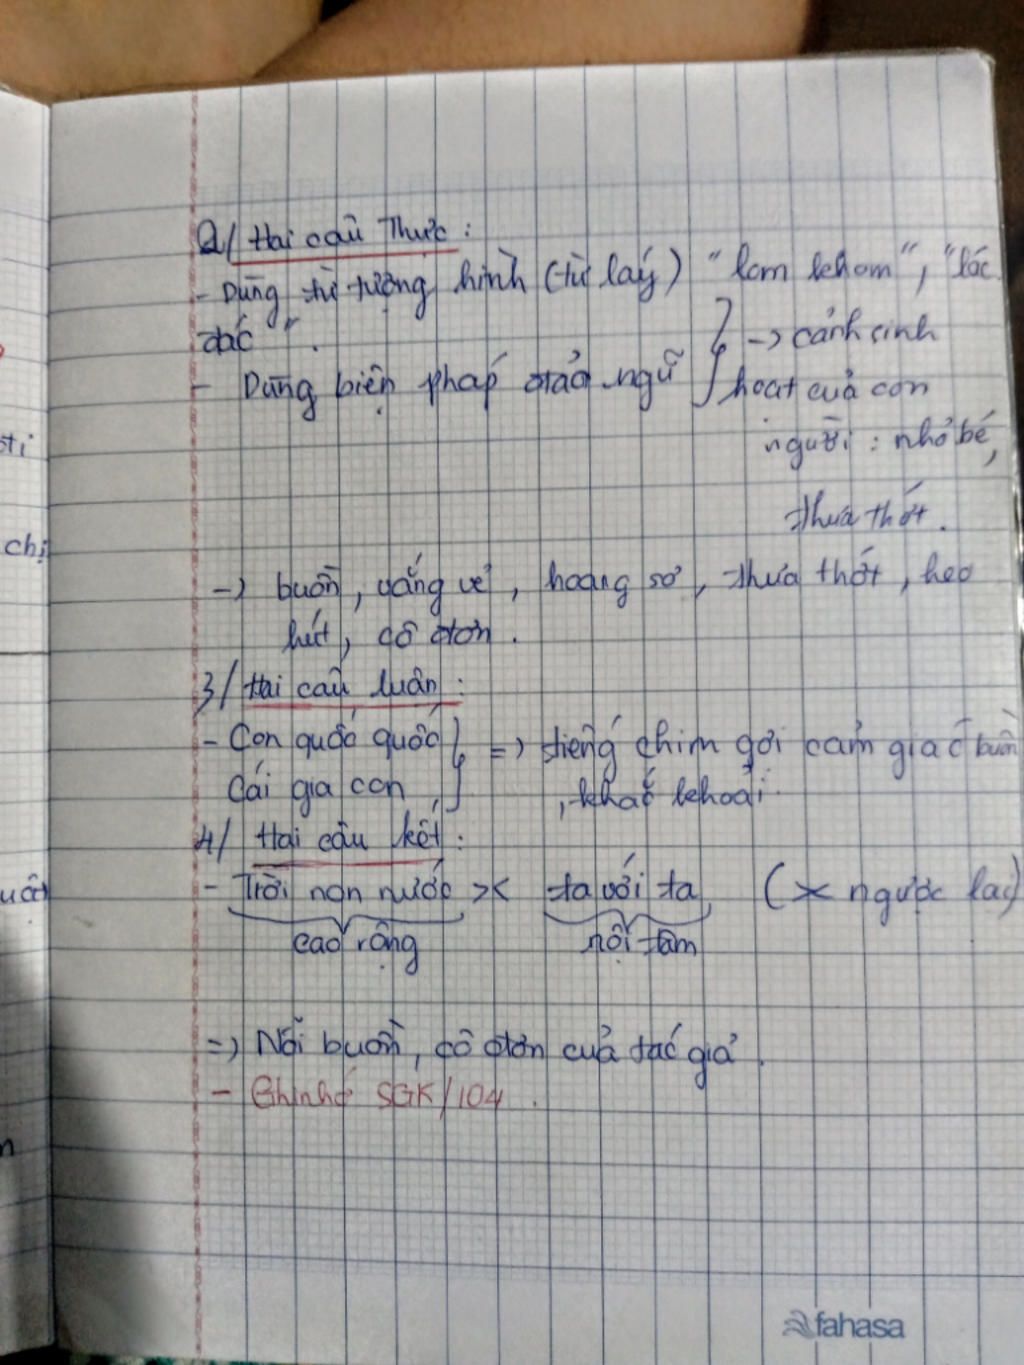 2/ Hai câu Thực:
- Dùng từ tượng hình (từ láy) "lom khom", "lác
đác".
- Dùng biện pháp đảo ngữ } -> cảnh sinh
hoạt của con
người: nhỏ bé,
thưa thớt.
-> buồn, vắng vẻ, hoang sơ, thưa thớt, heo
hút, cô đơn.
3/ Hai câu luận:
- Con quốc quốc } => tiếng chim gợi cảm giác buồn
Cái gia con , khắc khoải.
4/ Hai câu kết:
- Trời non nước >< ta với ta (>< ngược lại)
cao rộng nội tâm
=> Nỗi buồn, cô đơn của tác giả.
- Ghi nhớ SGK/104.
ti
chị
fahasa